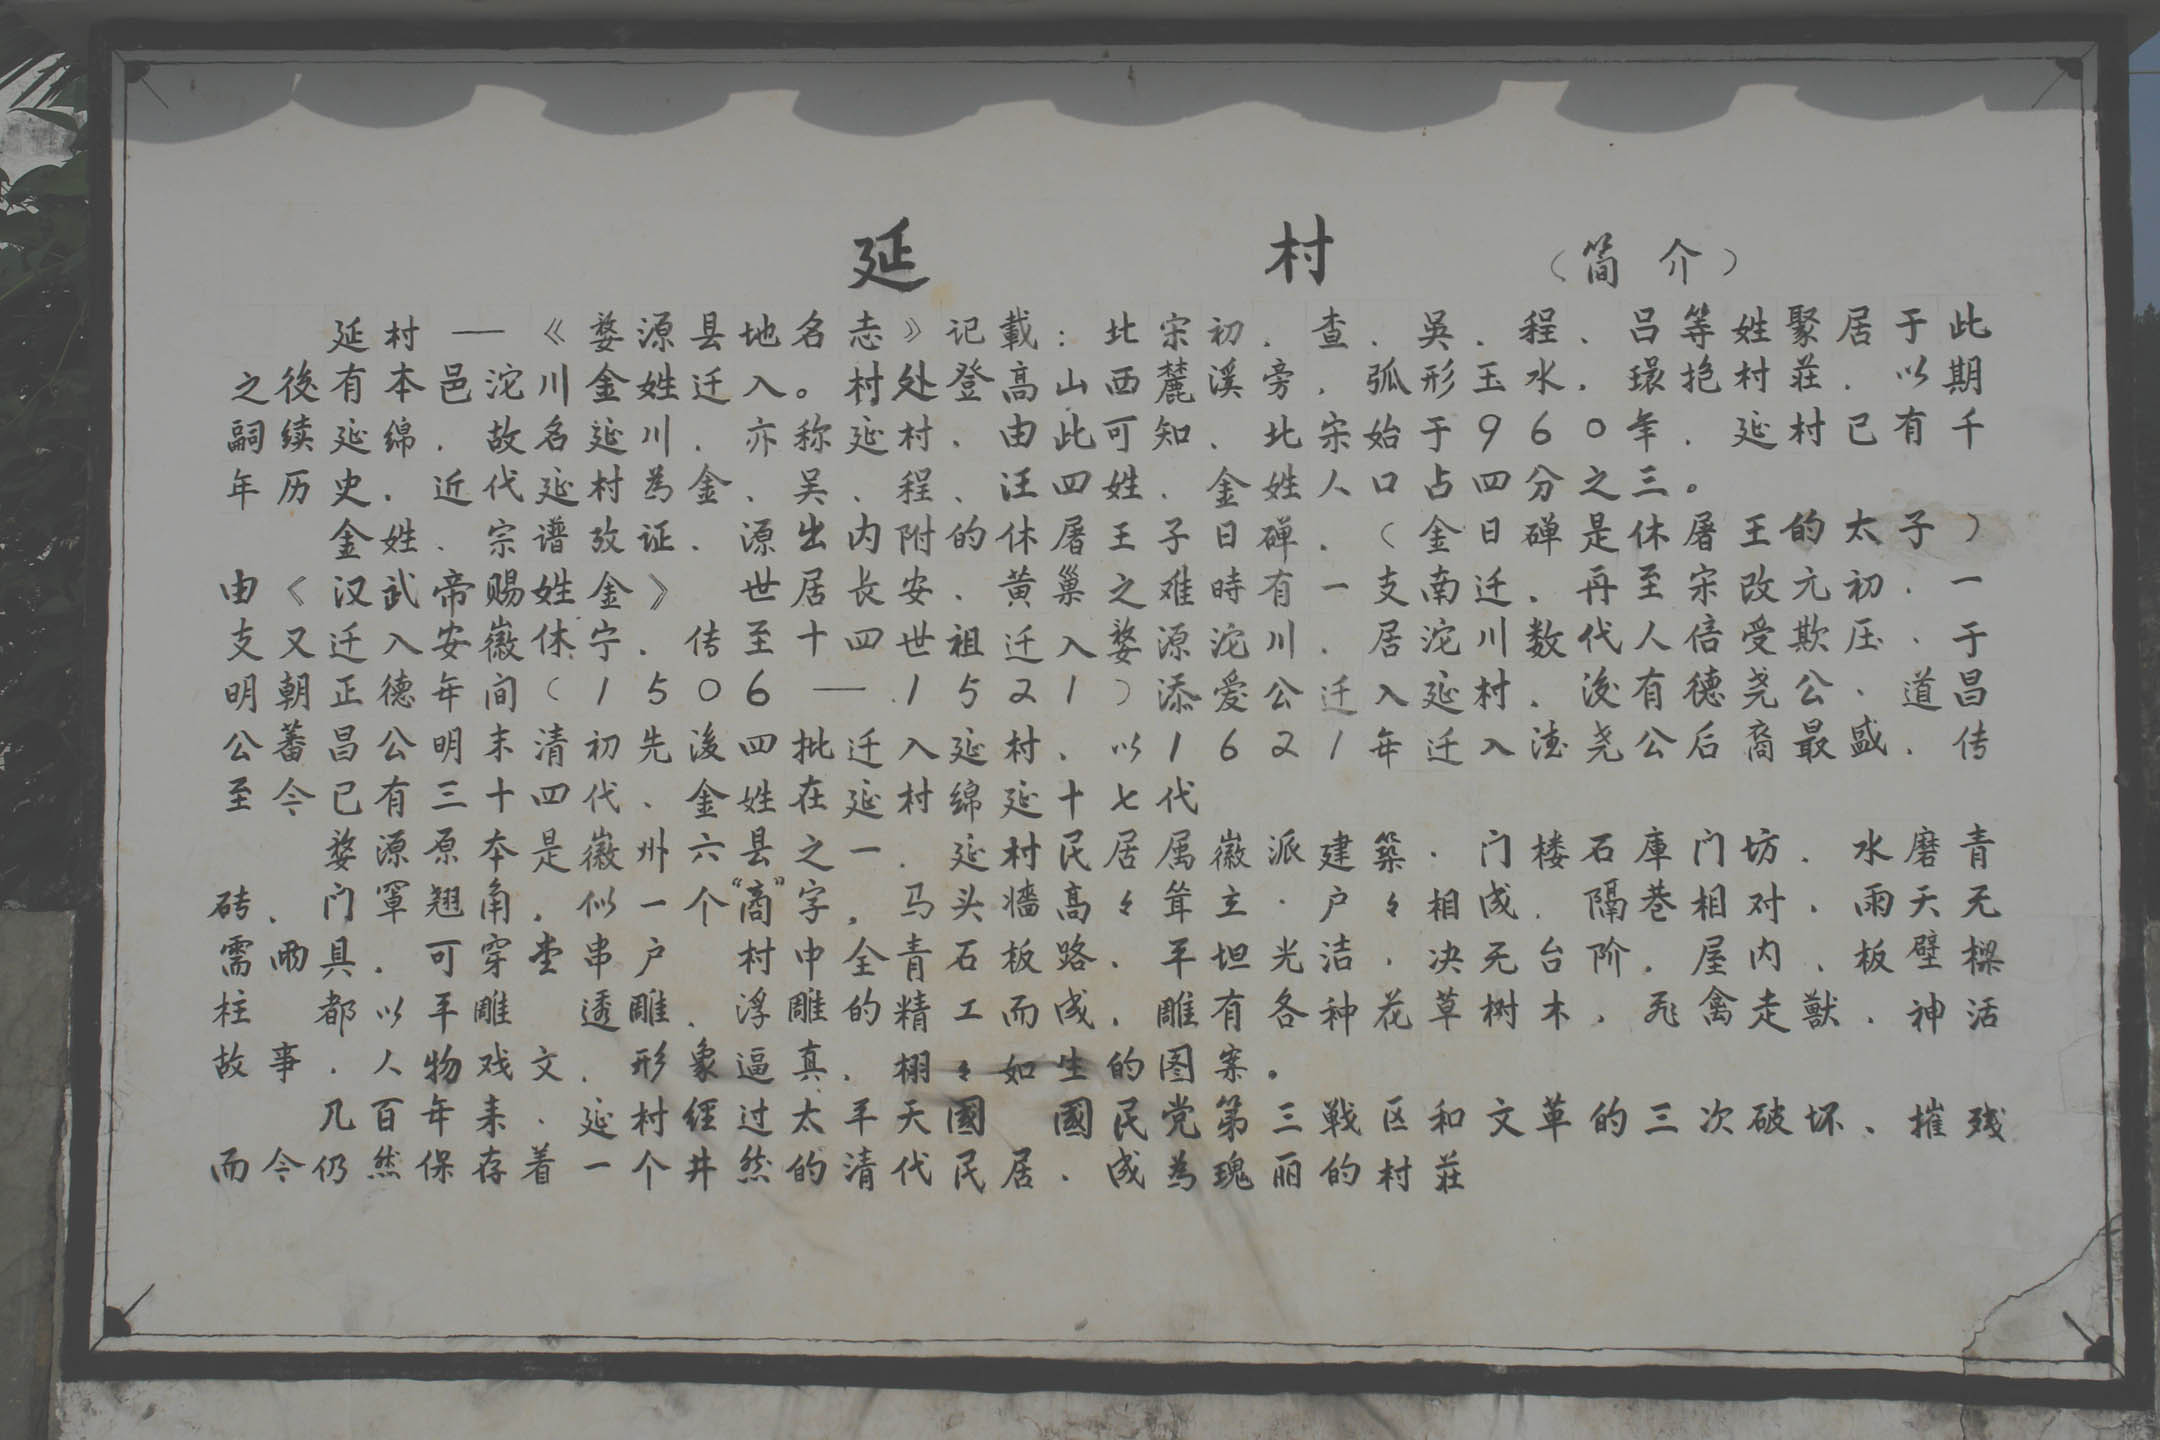 延村（简介）
延村——《婺源县地名志》记載：北宋初、查、吳、程、吕等姓聚居于此
之後有本邑沱川金姓迁入。村处登高山西麓溪旁，弧形玉水，環抱村莊，以期
嗣续延绵，故名延川，亦称延村，由此可知，北宋始于960年，延村已有千
年历史，近代延村為金、吴、程、汪四姓，金姓人口占四分之三。
金姓，宗谱攷证，源出内附的休屠王子日磾，（金日磾是休屠王的太子）
由《汉武帝赐姓金》 世居长安，黄巢之难時有一支南迁，再至宋改元初，一
支又迁入安徽休宁，传至十四世祖迁入婺源沱川，居沱川数代人倍受欺压，于
明朝正德年间（1506—1521）添爱公迁入延村，後有德尧公、道昌
公蕃昌公明末清初先後四批迁入延村，以1621年迁入德尧公后裔最盛，传
至今已有三十四代、金姓在延村绵延十七代
婺源原本是徽州六县之一，延村民居属徽派建築，门楼石庫门坊，水磨青
砖，门罩翘角，似一个“商”字，马头墙高々耸立，户々相成，隔巷相对，雨天无
需雨具，可穿堂串户 村中全青石板路，平坦光洁，决无台阶，屋内，板壁樑
柱 都以平雕 透雕、浮雕的精工而成，雕有各种花草树木，飛禽走獸，神活
故事，人物戏文，形象逼真，栩々如生的图案。
几百年来，延村经过太平天國 國民党第三戦区和文革的三次破坏、摧残
而今仍然保存着一个井然的清代民居，成為瑰丽的村莊